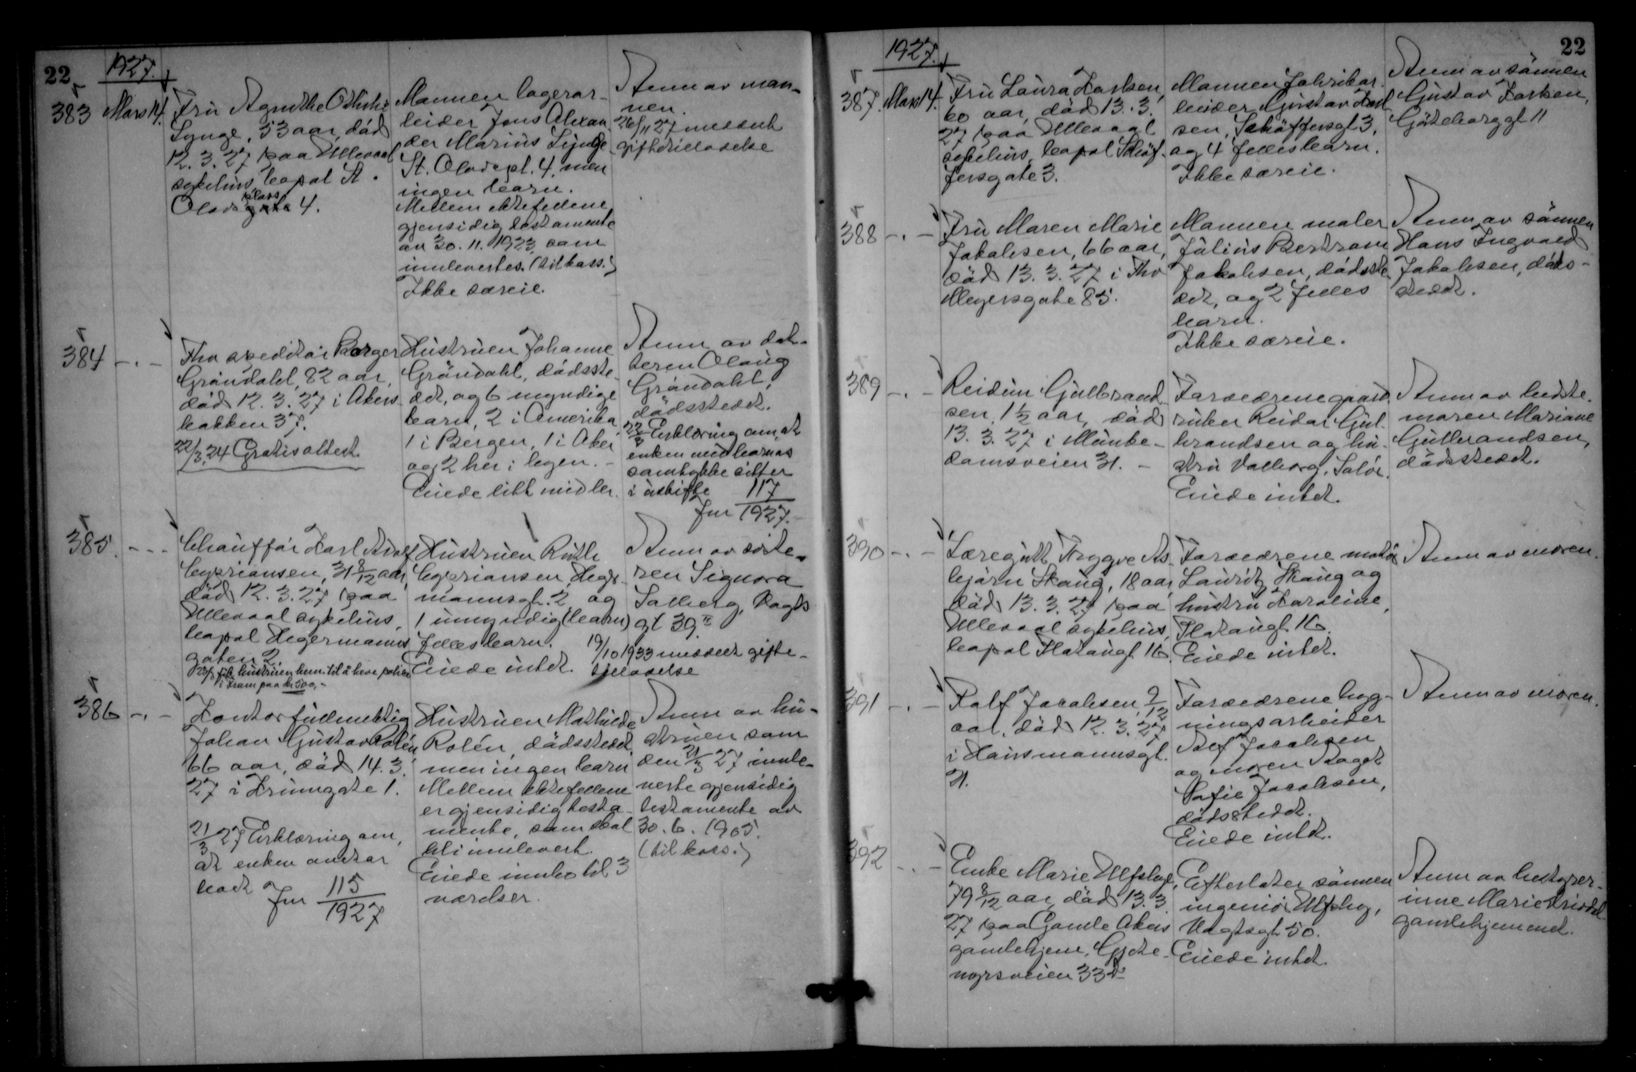 22
1927.
383
Mars 14.
Fru Agnethe Othilie
Lynge, 53 aar, död
12.3.27 paa Ullevaal
sykehus, bopæl St.
Olavs plass 4.
Mannen lagerar-
beider Jens Alexan
der Marius Lynge
St. Olavs pl. 4, men
ingen barn.
Mellem ektefellene
gjensidig testamente
av 30.11.1923 som
innlevertes. (til kass.)
Ikke særeie.
Anm av man-
nen.
26/11 27 utstedt
giftetillatelse
384
-.-
Fhv. speditör Borger
Gröndahl, 82 aar,
död 12.3.27 i Akers-
bakken 37.
22/3.24 Gratis attest.
Hustruen Johanne
Gröndahl, dödsste-
det, og 6 myndige
barn, 2 i Amerika,
1 i Bergen, 1 i Aker
og 2 her i byen. -
Eiede litt midler.
Anm av dat-
teren Olaug
Gröndahl,
dödsstedet.
22/3 Erklæring om, at
enken med barnas
samtykke sitter
i uskifte
Jnr 117/1927.
385.
---
Chaufför Karl Adolf
Cypriansen, 31 8/12 aar,
död 12.3.27 paa
Ullevaal sykehus,
bopæl Hegermanns
gaten 2.
Hustruen Ruth
Cypriansen Heger-
mannsgt. 2 og
1 umyndig (barn)
felles barn.
Eiede intet.
Anm av söste-
ren Signora
Solberg, Vogts
gt 39 II
19/10 1933 utstedt gifte-
tillatelse
386
-.-
Kontorfullmektig
Johan Gustav Rolén
66 aar, död 14.3.
27 i Kruusgate 1.
21/3 27 Erklæring om,
at enken overtar
boet Jnr 115/1927
Hustruen Mathilde
Rolén, dödsstedet,
men ingen barn
Mellem ektefellene
er gjensidig testa-
mente, som skal
bli innlevert.
Eiede innbo til 3
værelser.
Anm av hu-
struen som
den 21/3 27 innle-
verte gjensidig
testamente av
30.6.1905.
(til kass.)
22
1927.
387.
Mars 14.
Fru Laura Karlsen,
60 aar, död 13.3.
27 paa Ullevaal
sykehus, bopæl Schöf-
fersgate 3.
Mannen fabrikar
beider Gustav Karl
sen, Schöffersgt 3,
og 4 felles barn.
Ikke særeie.
Anm av sönnen
Gustav Karlsen,
Göteborggt 11
388
-.-
Fru Maren Marie
Jakobsen, 66 aar,
död 13.3.27 i Thv
Meyersgate 85.
Mannen maler
Julius Bertram
Jakobsen, dödsste
det, og 2 felles
barn.
Ikke særeie.
Anm av sönnen
Hans Ingvald
Jakobsen, döds-
stedet.
389
-.-
Reidun Gulbrand
sen, 1 1/2 aar, död
13.3.27 i Munke-
damsveien 31. -
Foreldrene gaard
bruker Reidar Gul
brandsen og hu-
stru Valborg, Solör.
Eiede intet.
Anm av beste-
moren Mariane
Gulbrandsen,
dödsstedet.
390
-.-
Læregutt Trygve As-
björn Skaug, 18 aar,
död 13.3.27 paa
Ullevaal sykehus,
bopæl Platougt 16.
Foreldrene
Lauritz Skaug og
hustru Karoline,
Platougt. 16.
Eiede intet.
Anm av moren.
391
-.-
Rolf Jacobsen 9/12
aar, död 12.3.27
i Hausmannsgt.
Foreldrene byg-
ningsarbeider
Jacobsen
og moren
Sofie Jacobsen,
dödsstedet.
Eiede intet.
Anm av moren.
392
-.-
Enke Marie Ulfsby,
79 8/12 aar, död 13.3.
27 paa Gamle Akers
gamlehjem, Gjete-
myrsveien 33 b
Efterlater sönnen
ingeniör Ulfsby,
Vogtsgt 50.
Eiede intet.
Anm av bestyrer-
inne Marie
gamlehjemmet.